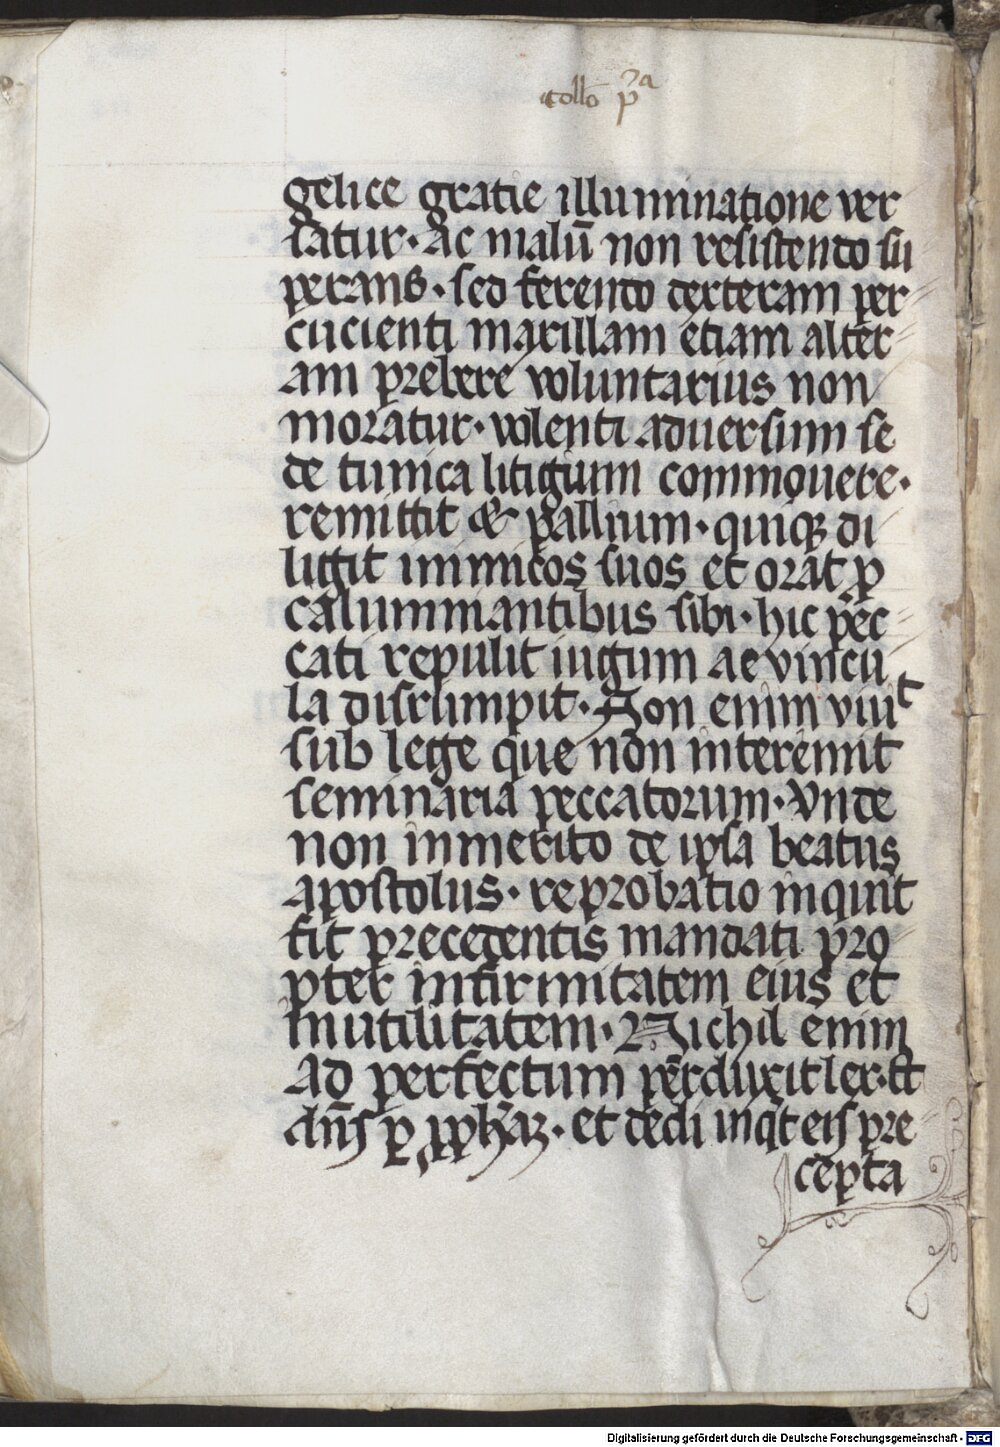 collō pᵃ
gelice gratie illuminatione ver
satur · ac malū non resistendo su
perans · sed ferendo dexteram per
cucienti maxillam etiam alter
am prebere voluntarius non
moratur · volenti aduersum se
de tunica litigium commouere ·
remittit & pallium · quiqꝫ di
ligit inimicos suos et orat ꝓ
calummiantibus sibi · hic pec
cati repulit iugum ac vincu
la disrumpit · Non enim viuit
sub lege que non interemit
seminaria peccatorum · Vnde
non inmerito de ipsa beatus
apostolus · reprobatio inquit
fit precedentis mandati pro
pter infirmitatem eius et
inutilitatem · Nichil enim
ad perfectum perduxit lex · Et
dn̄s ꝑ ꝓph̄az · et dedi inqͥt eis pre
cepta
Digitalisierung gefördert durch die Deutsche Forschungsgemeinschaft - DFG